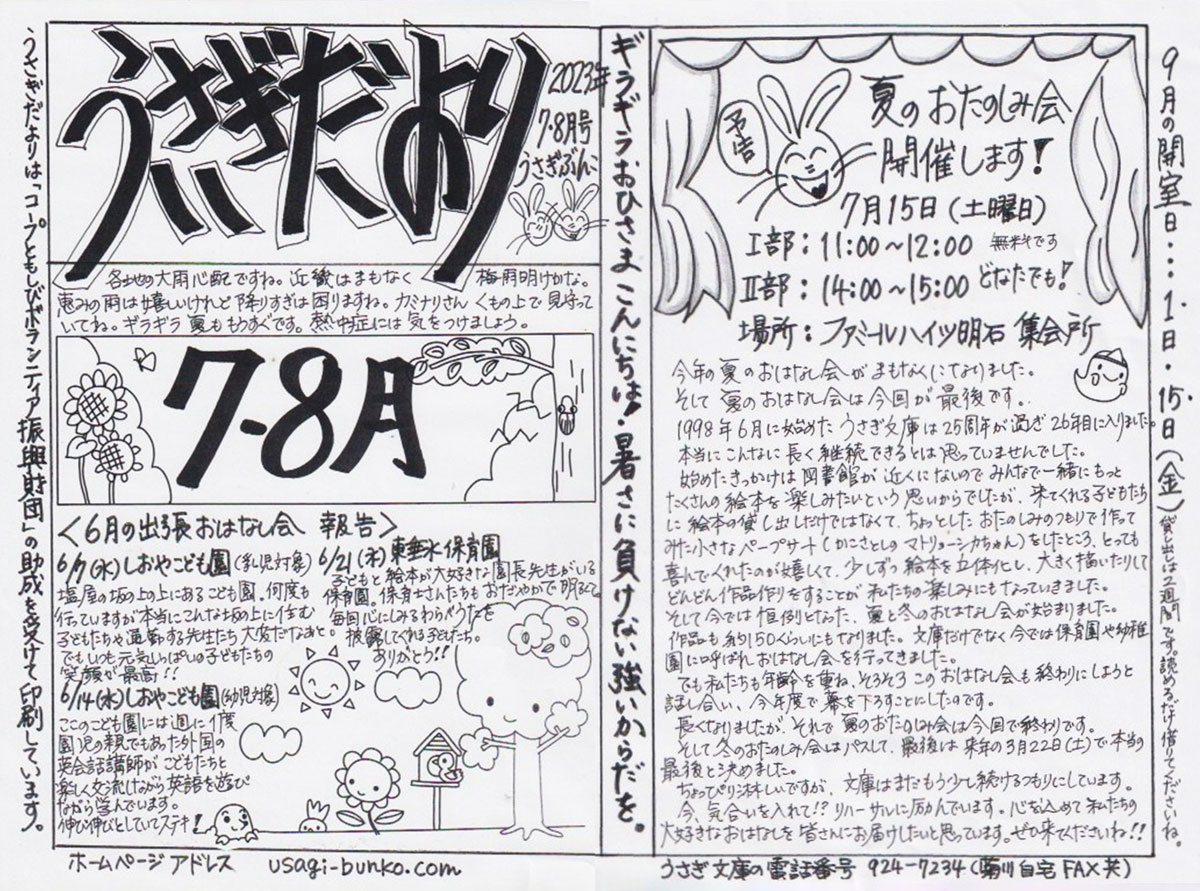 うさぎだより
2023年
7・8月号
うさぎぶんこ
各地の大雨心配ですね。近畿はまもなく 梅雨明けかな。
恵みの雨は嬉しいけれど降りすぎは困りますね。カミナリさん くもの上で見守って
いてね。ギラギラ夏ももうすぐです。熱中症には気をつけましょう。
7-8月
<6月の出張おはなし会 報告>
6/7(水)しおやこども園(乳児対象)
塩屋の坂の上の上にあるこども園。何度も
行っていますが本当にこんな坂の上に住む
子どもたちや通勤する先生たち大変だなあと。
でもいつも元気いっぱいの子どもたちの
笑顔が最高!!
6/14(水)しおやこども園(幼児対象)
ここのこども園には週に1度
園児の親でもあった外国の
英会話講師がこどもたちと
楽しく交流しながら英語を遊び
ながら学んでいます。
伸び伸びとしていてステキ!
6/21(水)東垂水保育園
子どもと絵本が大好きな園長先生がいる
保育園。保育士さんたちもおだやかで明るくて。
毎回心にしみるわらべうたを
披露してくれる子どもたち。
ありがとう!!
うさぎだよりは「コープともしびボランティア振興財団」の助成を受けて印刷しています。
ホームページアドレス usagi-bunko.com
ギラギラおひさま こんにちは!暑さに負けない強いからだを。
予告
夏のおたのしみ会
開催します!
7月15日(土曜日)
Ⅰ部:11:00~12:00 無料です
Ⅱ部:14:00~15:00 どなたでも!
場所:ファミールハイツ明石 集会所
今年の夏のおはなし会がまもなくになりました。
そして夏のおはなし会は今回が最後です。
1998年6月に始めたうさぎ文庫は25周年が過ぎ26年目に入りました。
本当にこんなに長く継続できるとは思っていませんでした。
始めたきっかけは図書館が近くにないのでみんなで一緒にもっと
たくさんの絵本を楽しみたいという思いからでしたが、来てくれる子どもたち
に絵本の貸し出しだけではなくて、ちょっとしたおたのしみのつもりで作って
みた小さなペープサート(かこさとしのマトリョーシカちゃん)をしたところ、とっても
喜んでくれたのが嬉しくて、少しずつ絵本を立体化し、大きく描いたりして
どんどん作品作りをすることが私たちの楽しみにもなっていきました。
そして今では恒例となった、夏と冬のおはなし会が始まりました。
作品も約150くらいにもなりました。文庫だけでなく今では保育園や幼稚
園に呼ばれおはなし会を行ってきました。
でも私たちも年齢を重ね、そろそろこのおはなし会も終わりにしようと
話し合い、今年度で幕を下ろすことにしたのです。
長くなりましたが、それで夏のおたのしみ会は今回で終わりです。
そして冬のおたのしみ会はパスして、最後は来年の3月22日(土)で本当の
最後と決めました。
ちょっぴり淋しいですが、文庫はまだもう少し続けるつもりにしています。
今、気合いを入れて!?リハーサルに励んでいます。心を込めて私たちの
大好きなおはなしを皆さんにお届けしたいと思っています。ぜひ来てくださいね!!
9月の開室日…1日・15日(金)貸し出しは2週間です。読めるだけ借りてくださいね。
うさぎ文庫の電話番号 924-7234(菊川自宅FAX共)